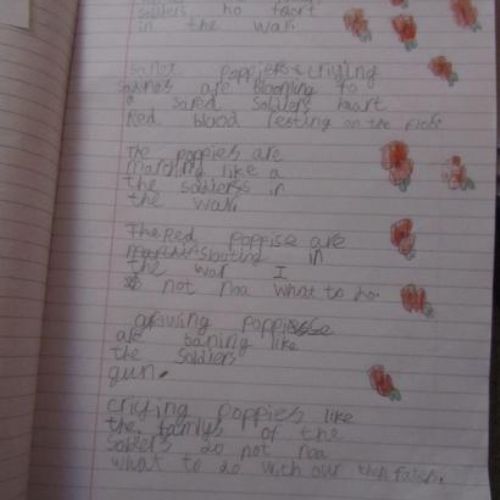 soldiers ho faort
in the war.
poppiers criying
are blooming to
a sared soldiers heart
Red blood resting on the
The poppies are
marching like a
the soldierss in
the war.
The Red poppise are
shoating in
the war I
do not noa what to ho.
growing poppies
are baning like
the soldiers
gun.
criying poppies like
the familys of the
do not noa
what to do with our